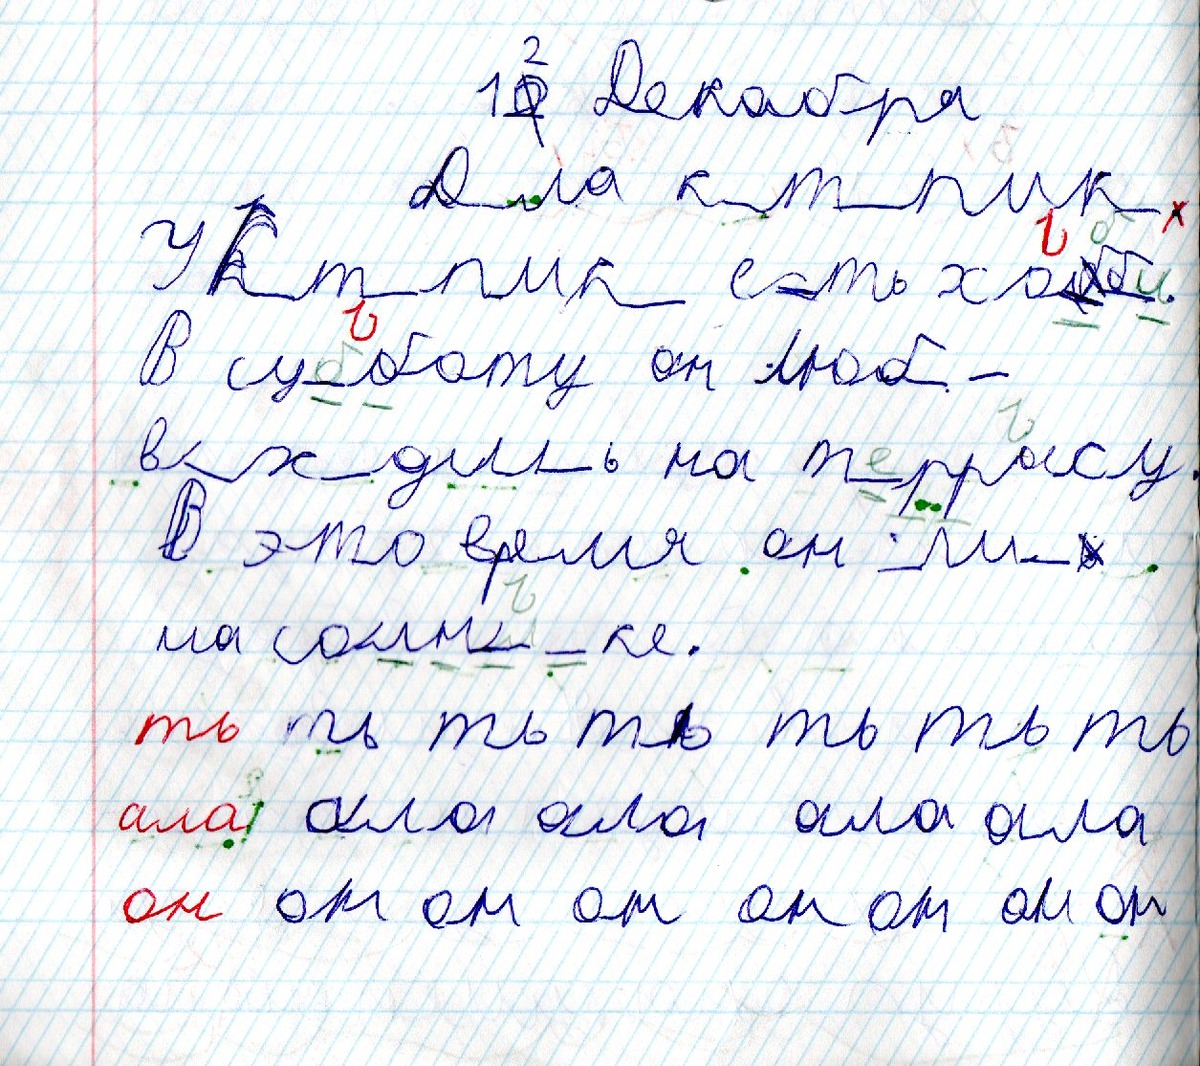 12 Декабря
Д_ла к_т_пик_
У К_т_пик_ есть хобби.
В субботу он люб_-
в_ход_ть на террасу.
В это время он
на солн_ _ке.
ть ть ть ть ть ть ть
ала ала ала ала ала
он он он он он он он он